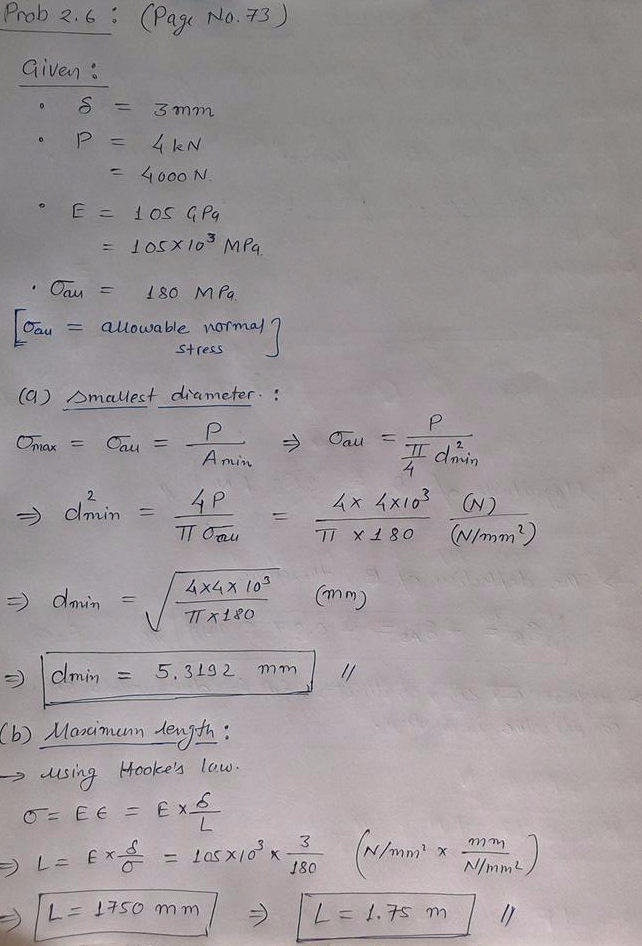 Prob 2.6 : (Page No. 73)
Given :
• δ = 3 mm
• P = 4 kN
= 4000 N.
• E = 105 GPa
= 105×10³ MPa.
• σall = 180 MPa.
[σall = allowable normal stress]
(a) Smallest diameter. :
σmax = σall = P / Amin ⇒ σall = P / (π/4 d²min)
⇒ d²min = 4P / (π σall) = (4 × 4×10³) / (π × 180) (N) / (N/mm²)
⇒ dmin = √((4×4×10³) / (π×180)) (mm)
⇒ dmin = 5.3192 mm //
(b) Maximum length :
→ using Hooke's law.
σ = E ε = E × δ/L
⇒ L = E × δ/σ = 105×10³ × 3/180 (N/mm² × mm / N/mm²)
⇒ L = 1750 mm ⇒ L = 1.75 m //